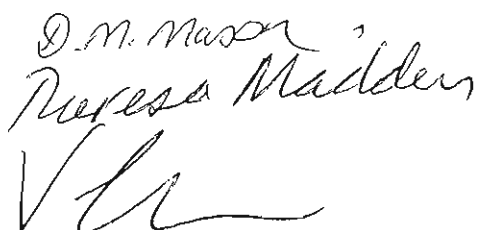 D.M. Mason
Theresa Madden